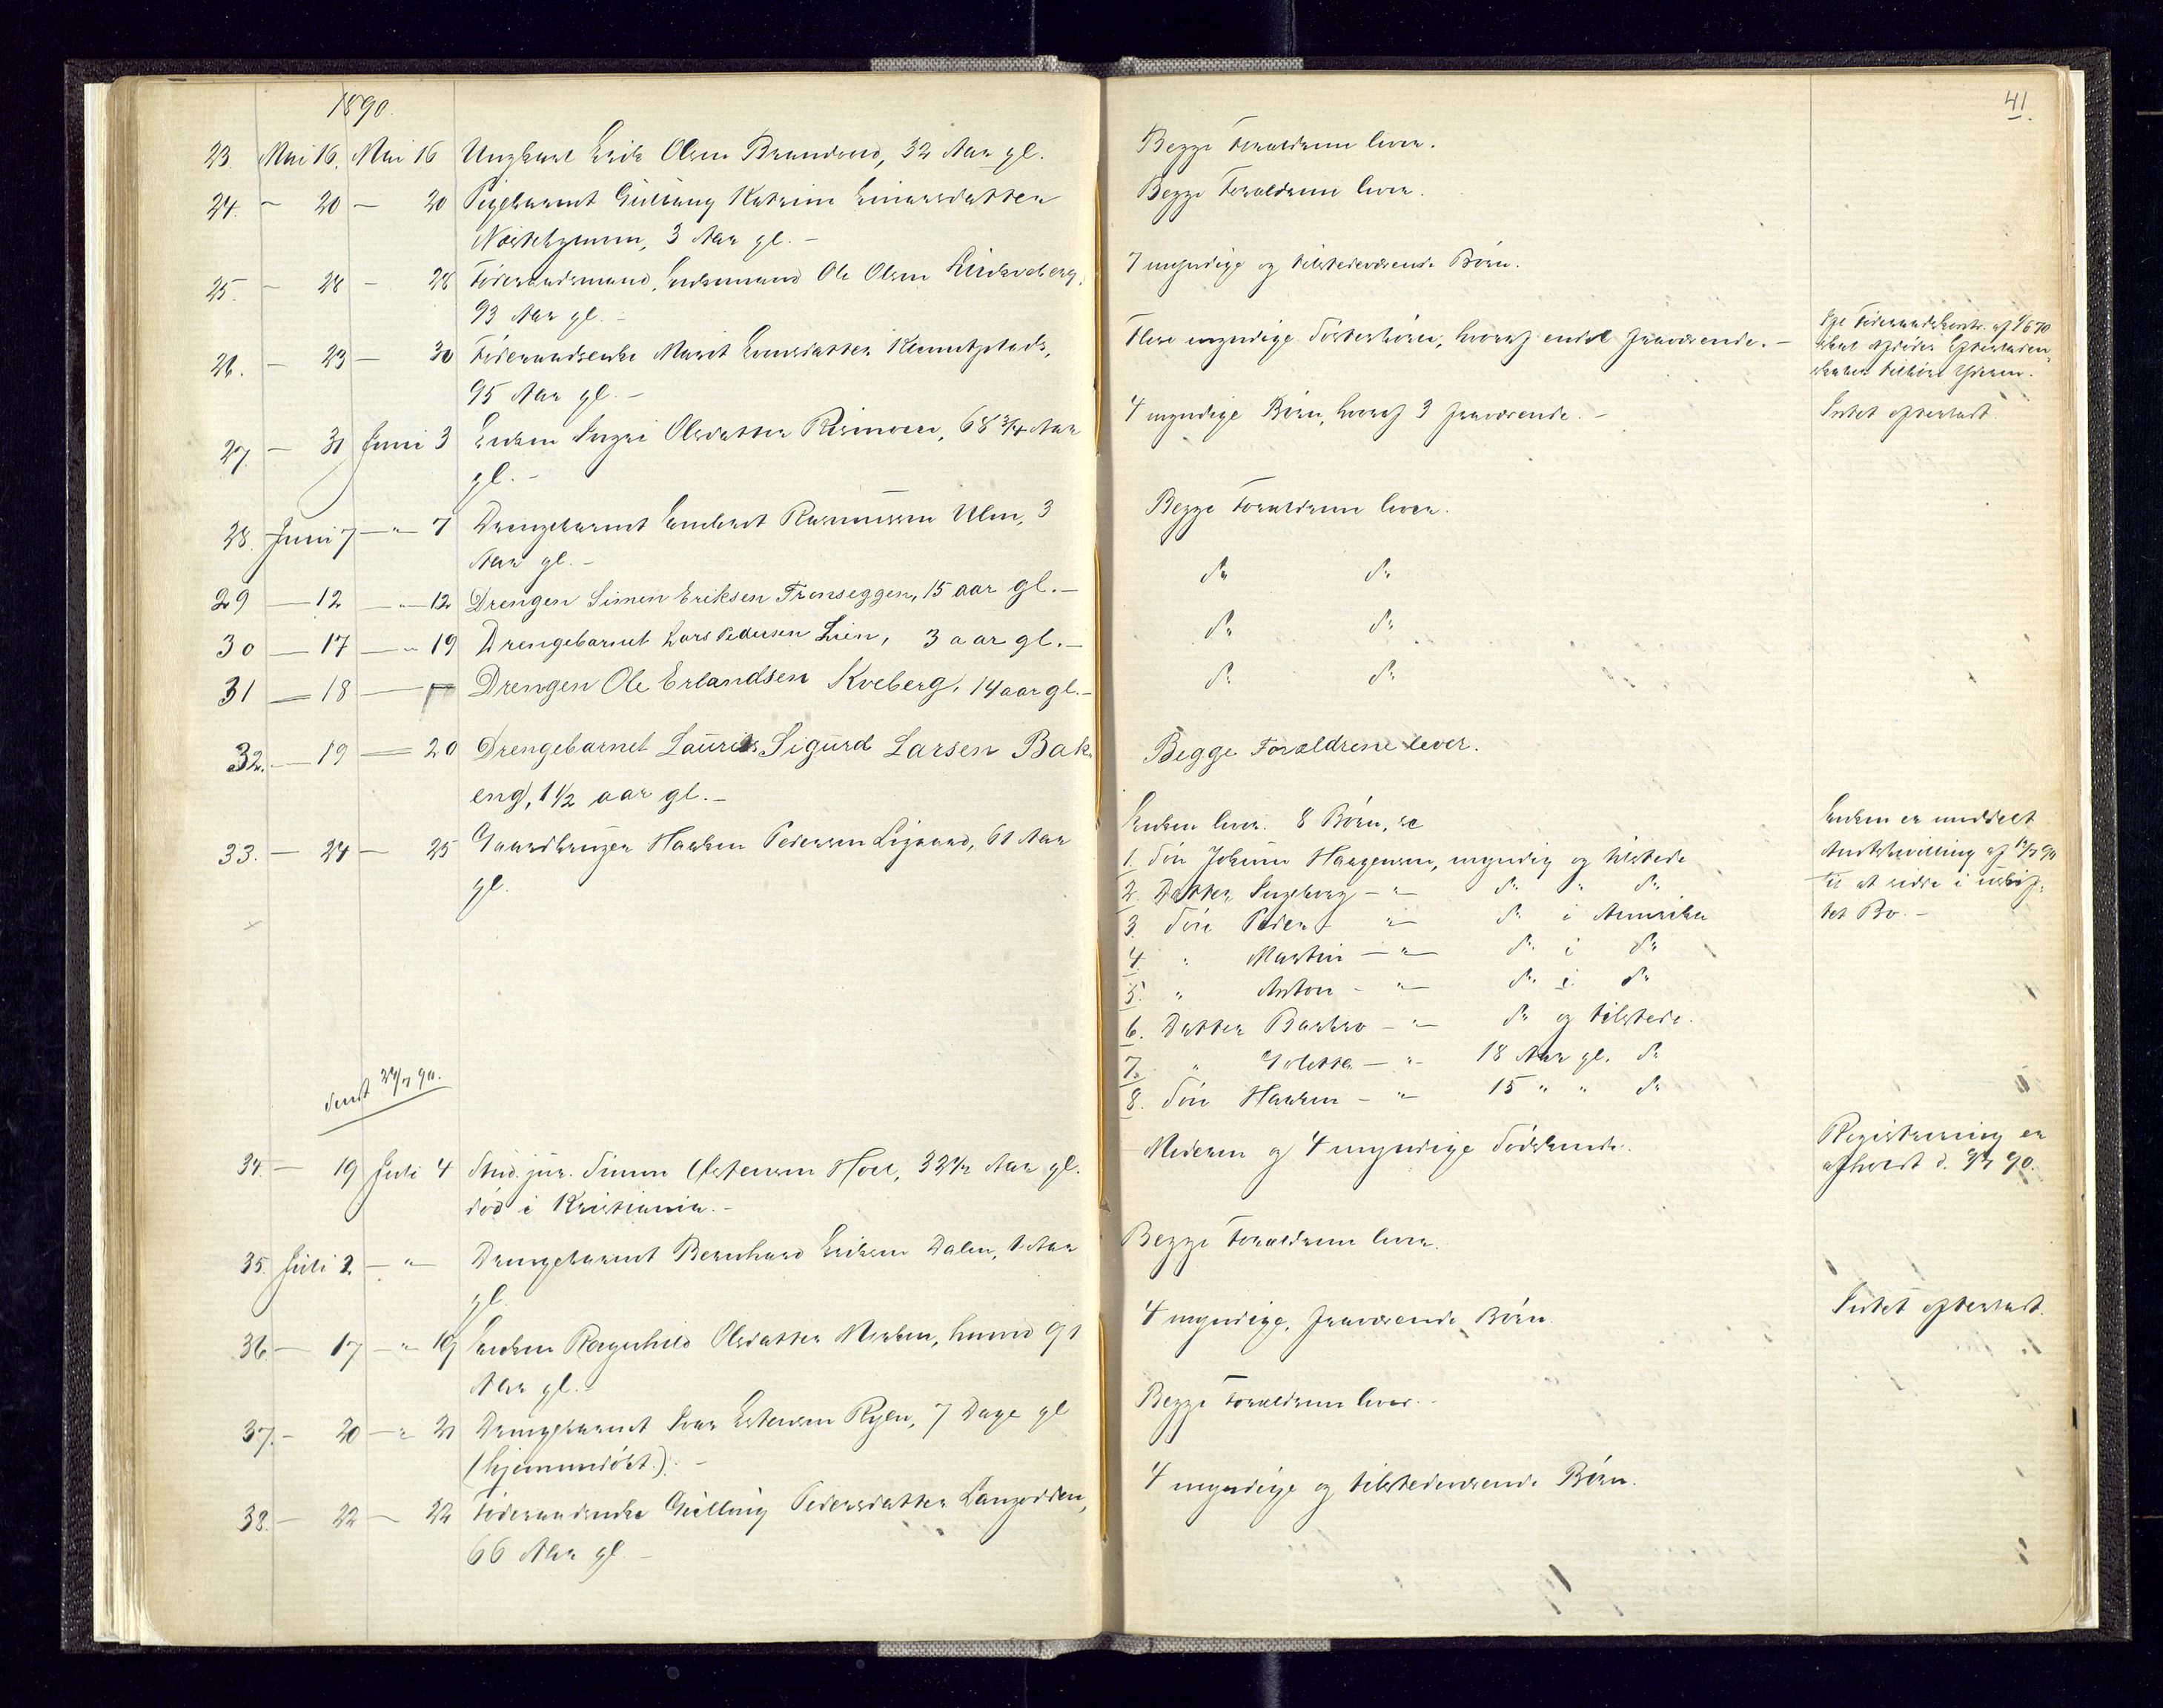 1890.
23. Mai 16. Mai 16 Ungkarl Erik Olsen Brandvold, 32 Aar gl.
24. - 20 - 20 Pigebarnet Gullaug Katrine Einarsdatter
3 Aar gl. -
25. - 28 - 28 Føderaadsmand, Enkemand Ole Olsen
93 Aar gl. -
26. - 23 - 30 Føderaadsenke Marit
95 Aar gl. -
27. - 31 Juni 3 Enken Ingri Olsdatter Rismoen, 68 3/4 Aar
gl. -
28. Juni 7 - " 7 Drengebarnet Embret Rasmussen Ulen, 3
Aar gl. -
29 - 12 - " 12 Drengen Simen Eriksen Tronseggen, 15 aar gl. -
30 - 17 - " 19 Drengebarnet Lars Pedersen Lien, 3 aar gl. -
31 - 18 - Drengen Ole Erlandsen Kveberg, 14 aar gl. -
32. - 19 - 20 Drengebarnet Laurits Sigurd Larsen Bak-
eng, 1 1/2 aar gl. -
33. - 24 - 25 Gaardbruger Haaken Pedersen Ligaard, 61 Aar
gl.
Sendt 24/7 90.
34. - 19 Juli 4 Stud. jur. Simen Estensen Hoel, 32 1/2 Aar gl.
død i Kristiania. -
35. Juli 2. - " - Drengebarnet Bernhard Eriksen Dalen, 1 Aar
gl.
36. - 17 - " 19 Enken Ragnhild Olsdatter Moen, 91
Aar gl. -
37. - 20 - " 21 Drengebarnet Ivar Estensen Ryen, 7 Dage gl
(hjemmedøbt). -
38. - 22 - 22 Føderaadsenke Gulling Pedersdatter Langodden,
66 Aar gl -
41.
Begge Forældrene lever.
Begge Forældrene lever.
7 myndige og tilstedeværende Børn.
Flere myndige Søsterbørn, hvoraf endel fraværende. -
4 myndige Børn, hvoraf 3 fraværende. -
Intet efterladt.
Begge Forældrene lever.
do do
do do
do do
Begge Forældrene lever.
Enken lever. 8 Børn, se
1. Søn Johan Haagensen, myndig og tilstede
2. Datter Ingeborg - " do " do
3. Søn Peder " do i Amerika
4. " Martin - " - do i do
5. " Anton - " - do i do
6. Datter Barbro - " - do og tilstede.
7. " Goletta - " - 18 Aar gl. do
8. Søn Haaken - " - 15 " " do
Enken er meddelt
Amtsbevilling af 12/7 90
til at sidde i uskif-
tet Bo. -
Moderen og 4 myndige Sødskende.
Registrering er
afholdt d. 90.
Begge Forældrene lever.
4 myndige, fraværende Børn.
Intet efterladt.
Begge Forældrene lever. -
4 myndige og tilstedeværende Børn.